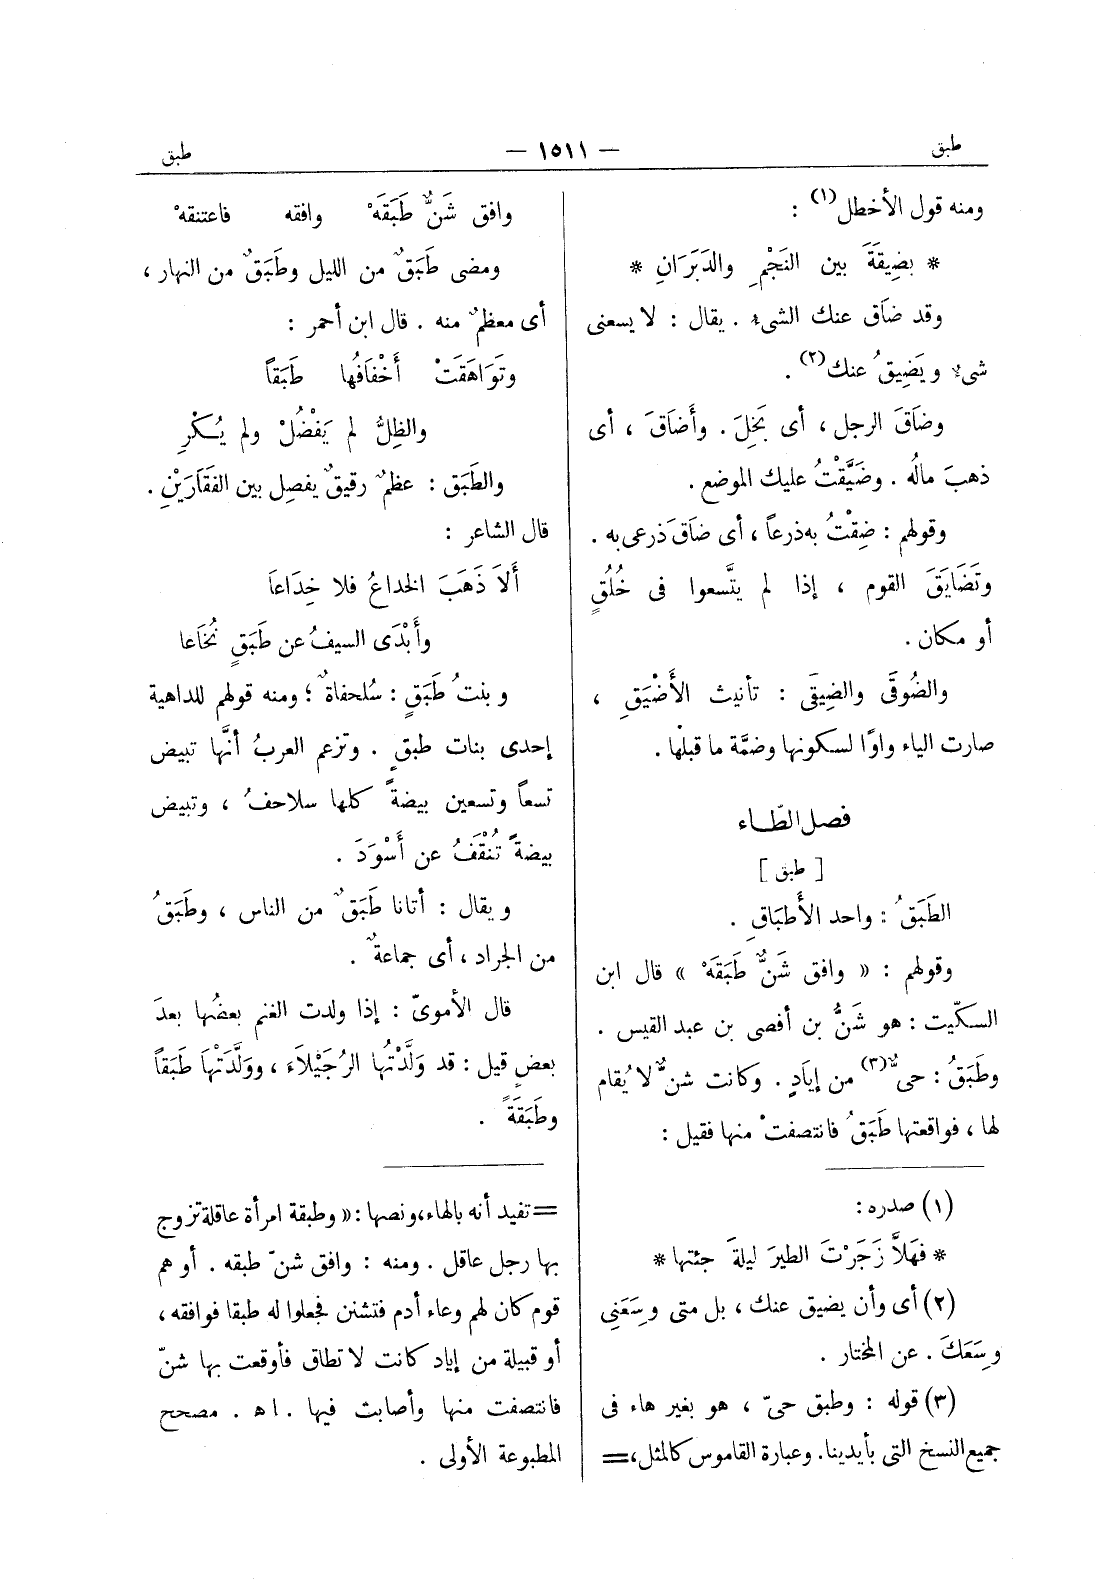 طبق
— ١٥١١ —
طبق
ومنه قول الأخطل(١) :
* بضِيقَةَ بين النَجْمِ والدَبَرَانِ *
وقد ضاق عنك الشىء . يقال : لا يسعنى
شىء ويَضِيقُ عنك(٢) .
وضَاقَ الرجل ، أى بَخِلَ . وأَضَاقَ ، أى
ذهبَ مالُه . وضَيَّقْتُ عليك الموضع .
وقولهم : ضِقْتُ به ذرعاً ، أى ضَاقَ ذرعى به .
وتَضَايَقَ القوم ، إذا لم يتَّسعوا فى خُلُقٍ
أو مكان .
والضُوقَى والضِيقَى : تأنيث الأَضْيَقِ ،
صارت الياء واوًا لسكونها وضمَّة ما قبلْها .
فصل الطّاء
[ طبق ]
الطَبَقُ : واحد الأَطبَاقِ .
وقولهم : « وافق شَنٌّ طَبَقَهْ » قال ابن
السكّيت : هو شَنُّ بن أفصى بن عبد القيس .
وطَبَقُ : حىٌّ(٣) من إيَادٍ . وكانت شنٌّ لا يُقام
لها ، فواقعتها طَبَقُ فانتصفتْ منها فقيل :
(١) صدره :
* فهَلاَّ زَجَرْتَ الطيرَ ليلةَ جئتها *
(٢) أى وأن يضيق عنك ، بل متى وسِعَنِى
وسِعَكَ . عن المختار .
(٣) قوله : وطبق حىّ ، هو بغير هاء فى
جميع النسخ التى بأيدينا. وعبارة القاموس كالمثل، =
وافق شَنٌّ طَبَقَهْ وافقه فاعتنقهْ
ومضى طَبَقٌ من الليل وطَبَقٌ من النهار ،
أى معظمٌ منه . قال ابن أحمر :
وتَوَاهَقَتْ أَخْفَافُها طَبَقاً
والظِلُّ لم يَفْضُلْ ولم يُكْرِ
والطَبَق : عظمٌ رقيقٌ يفصِل بين الفَقَارَيْنِ .
قال الشاعر :
أَلاَ ذَهَبَ الخداعُ فلا خِدَاعَا
وأَبْدَى السيفُ عن طَبَقٍ نُخَاعا
وبنتُ طَبَقٍ : سُلحفاةٌ ؛ ومنه قولهم للداهية
إحدى بنات طبقٍ . وتزعم العربُ أنَّها تبيض
تسعاً وتسعين بيضةً كلها سلاحفُ ، وتبيض
بيضةً تُنْقَفُ عن أَسْوَدَ .
ويقال : أتانا طَبَقٌ من الناس ، وطَبَقُ
من الجراد ، أى جماعةٌ .
قال الأموىّ : إذا ولدت الغنم بعضُها بعدَ
بعضٍ قيل : قد وَلَّدْتُها الرُجَيْلاَءَ ، ووَلَّدَتْهَا طَبَقاً
وطَبَقَةً .
= تفيد أنه بالهاء، ونصها : « وطبقة امرأة عاقلة تزوج
بها رجل عاقل . ومنه : وافق شنّ طبقه . أو هم
قوم كان لهم وعاء أدم فتشنن فجعلوا له طبقا فوافقه ،
أو قبيلة من إياد كانت لا تطاق فأوقعت بها شنّ
فانتصفت منها وأصابت فيها . اهـ . مصحح
المطبوعة الأولى .